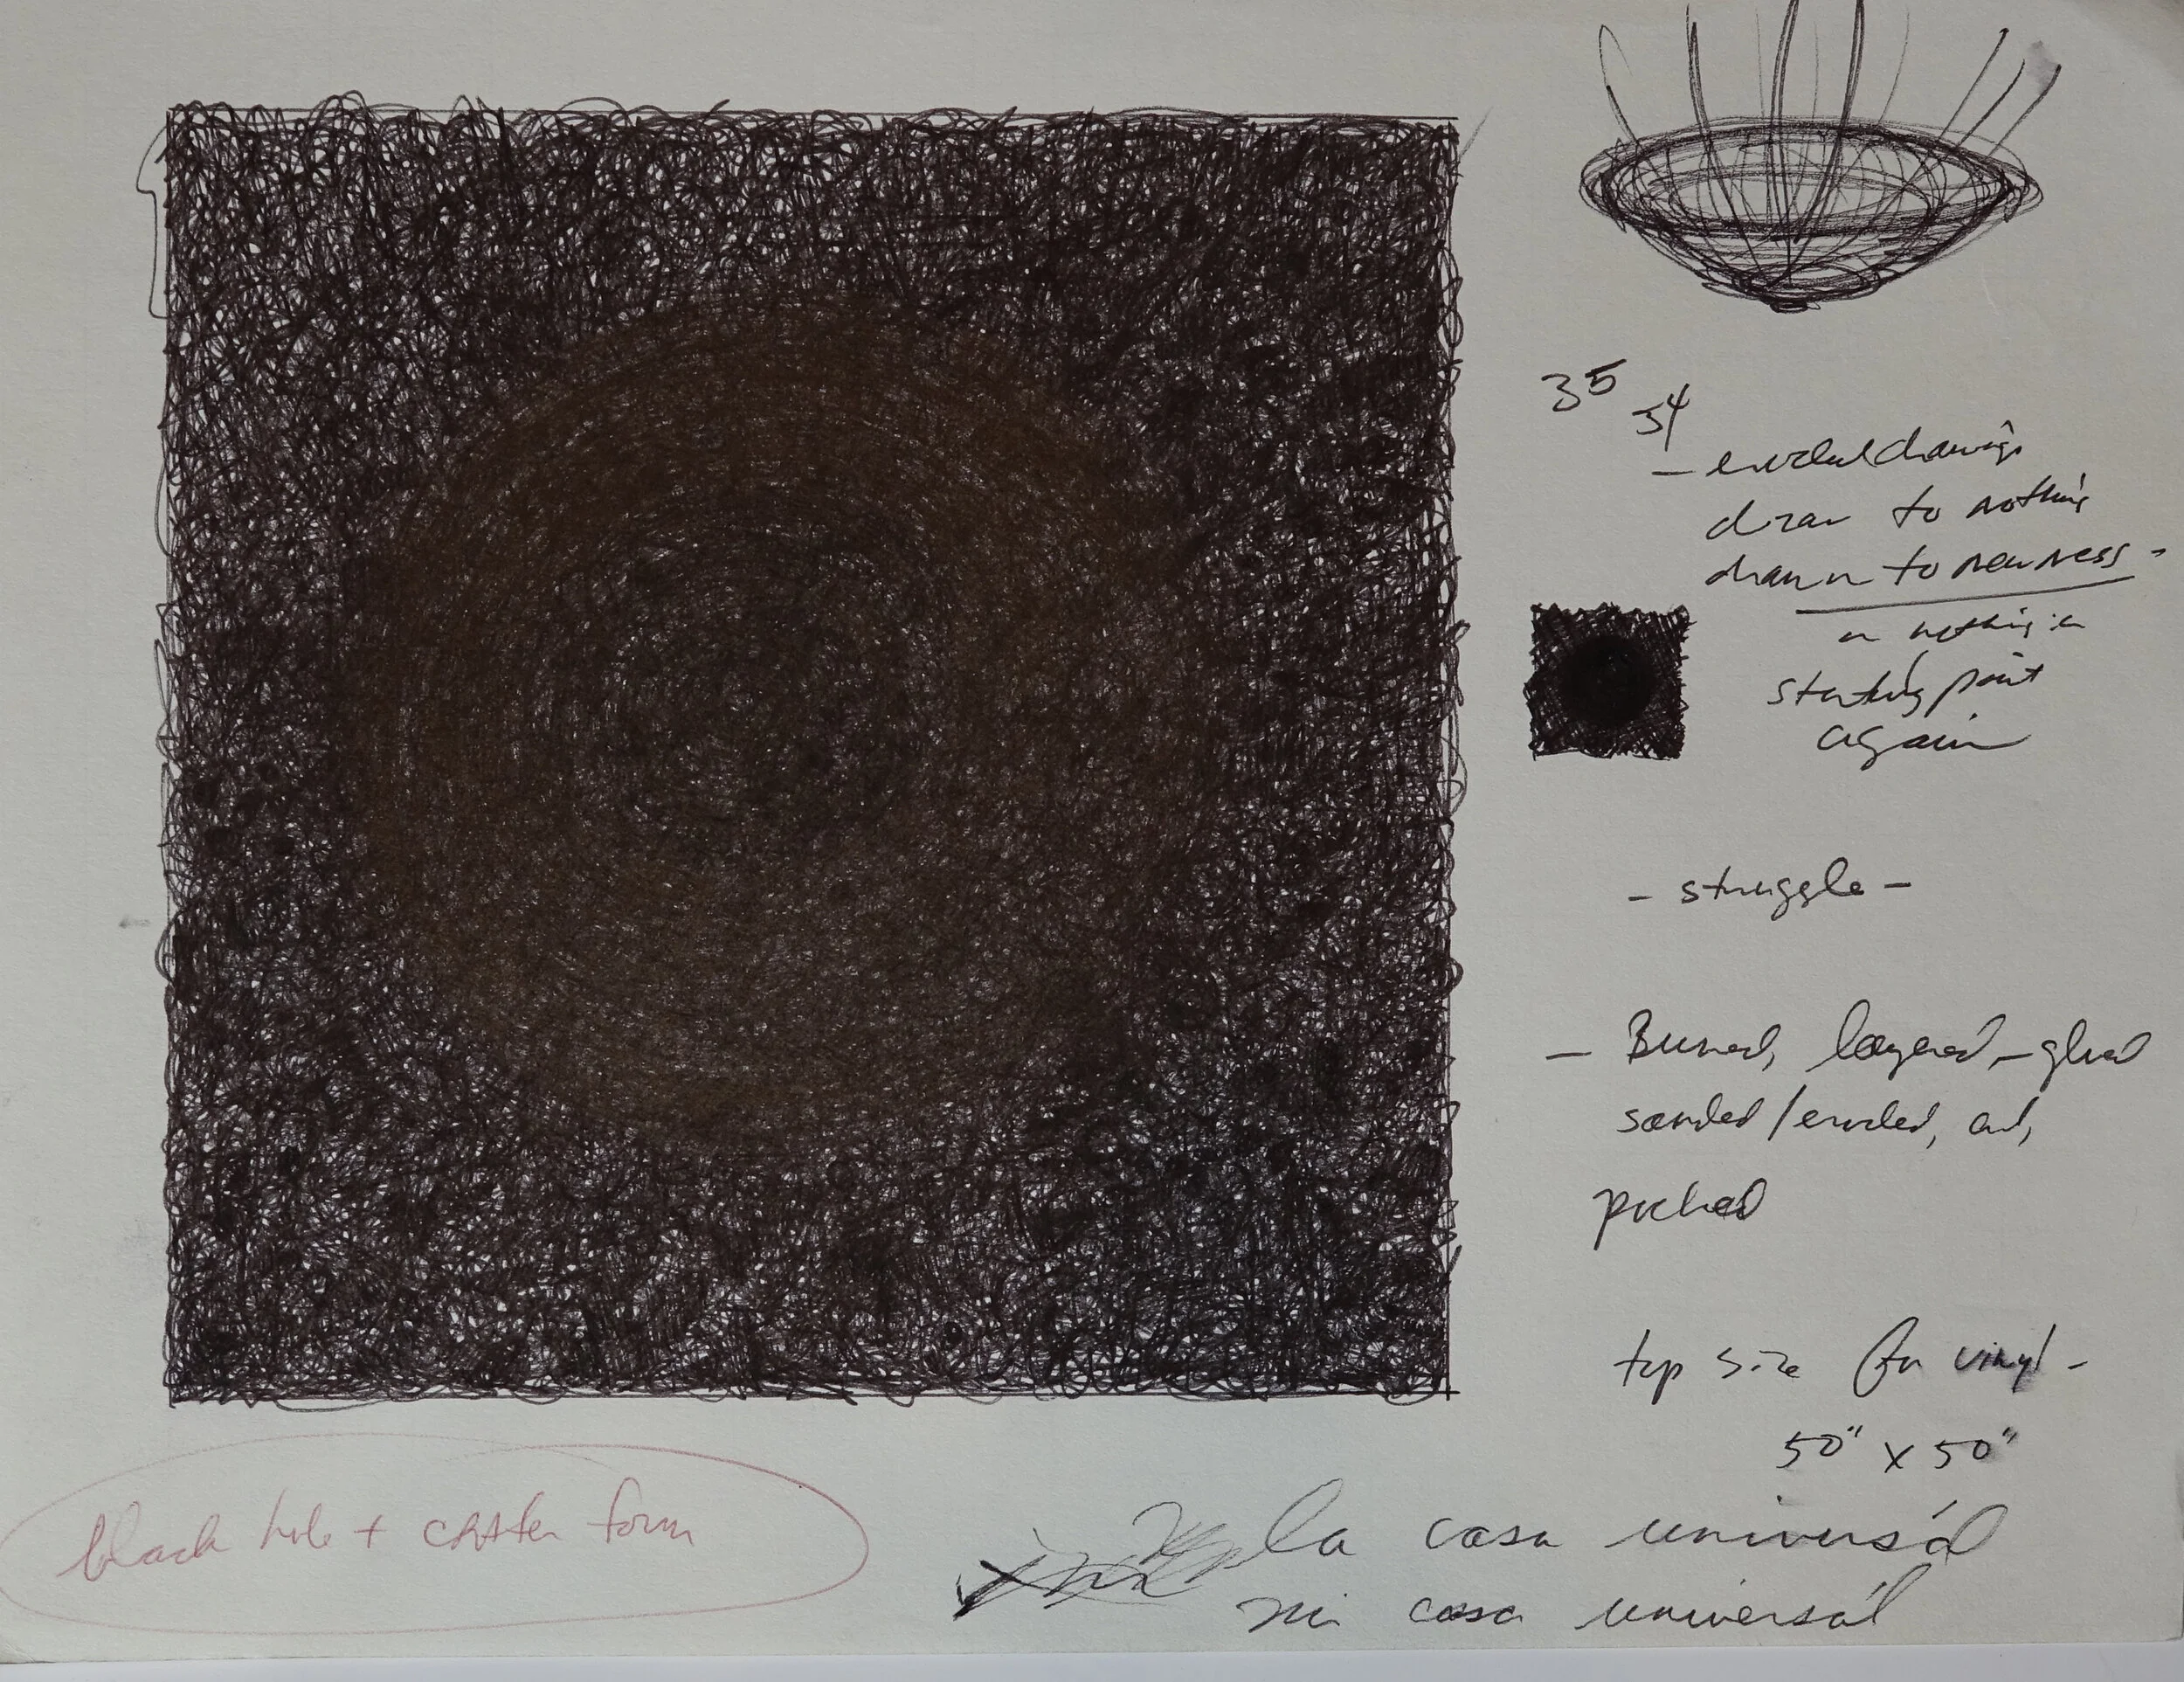 35
54
- eroded drawings
draw to nothing
drawn to newness -
or nothing in
starting point
again
- struggle -
- Burned, layered, - glued
sanded/eroded, cut,
picked
top size for vinyl -
50" x 50"
black hole + crater form
la casa universál
mi casa universál